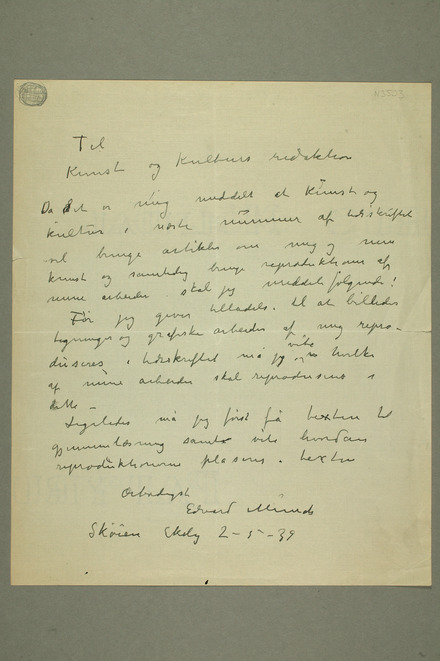 N3503
Til
Kunst og Kulturs redaktion
Da det er mig meddelt at Kunst og
Kultur i næste nummer af tidsskriftet
vil bringe artikler om mig og min
kunst og samtidig bringe reproduktioner af
mine arbeider skal jeg meddele følgende!
Før jeg giver tilladelse til at billeder
tegninger og grafiske arbeider af mig repro-
duseres i tidsskriftet må jeg vite hvilke
af mine arbeider skal reproduseres i
dette –
Ligeledes må jeg først få texten til
gjennemlæsning samt vite hvordan
reproduktionerne plaseres i texten
Ærbødigst
Edvard Munch
Skøien Ekely 2–5–39